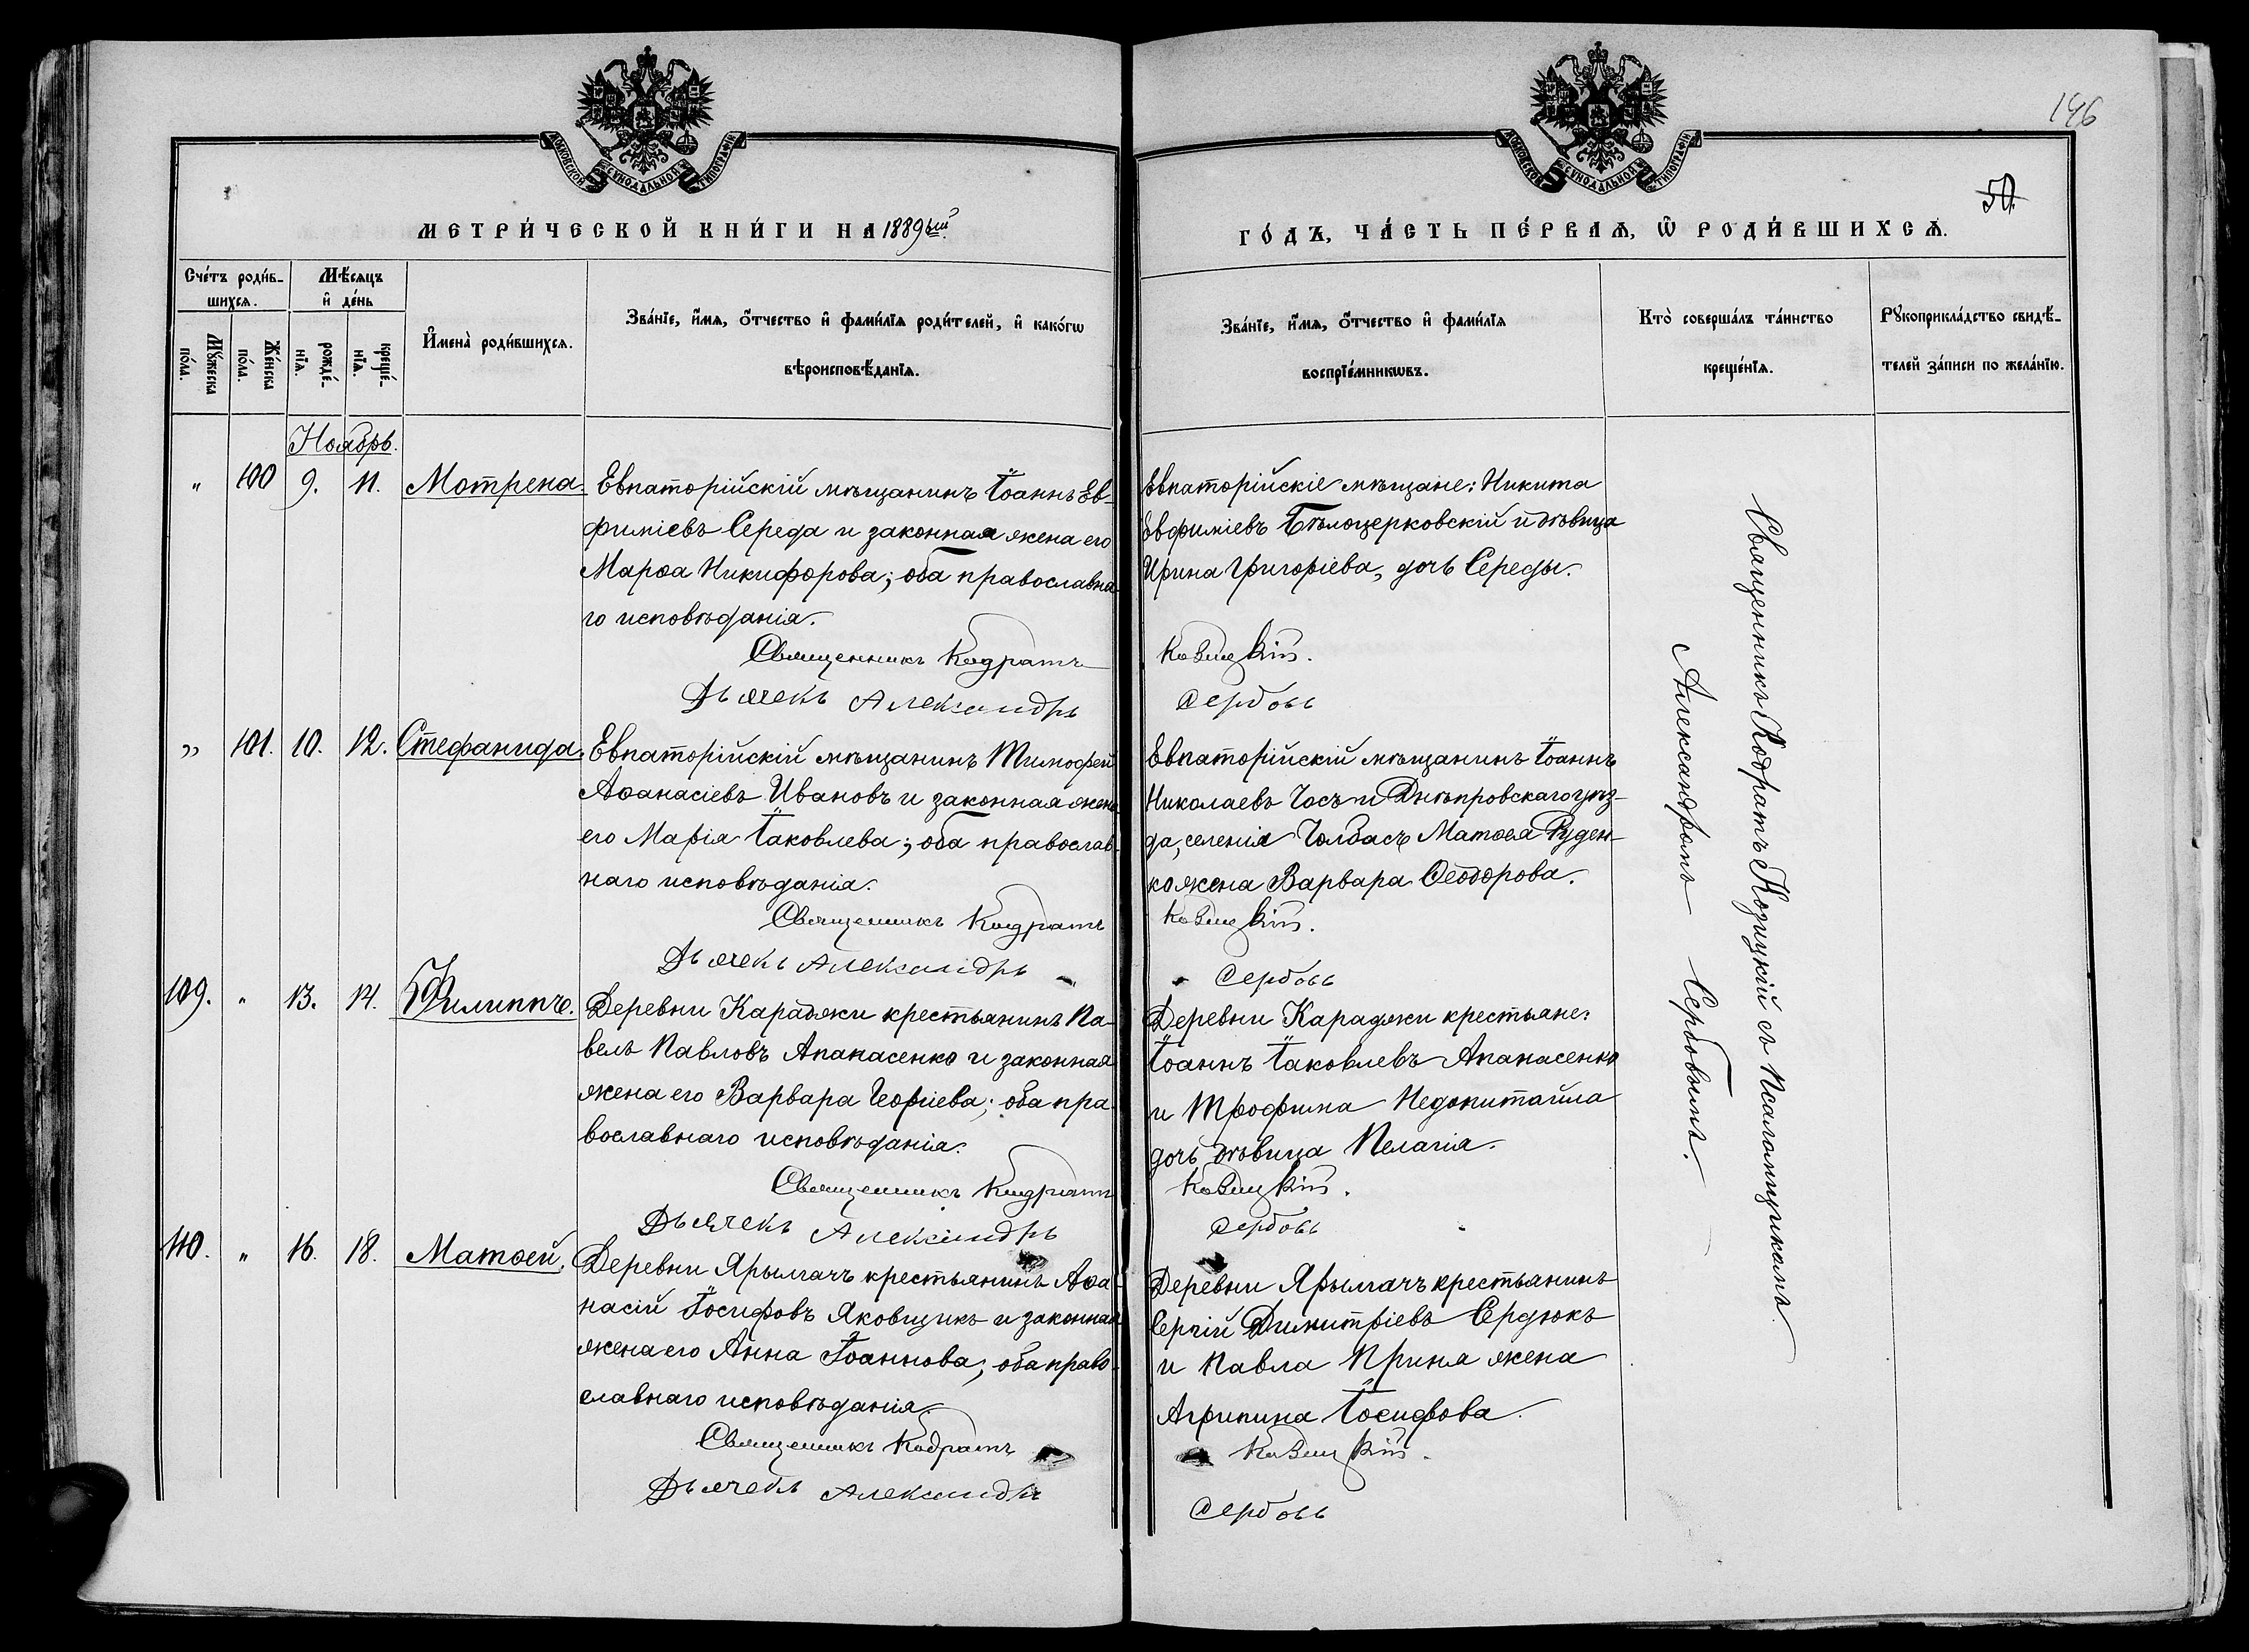 146
50
МОСКОВСКОЙ СѴНОДАЛЬНОЙ ТИПОГРАФІИ
МОСКОВСКОЙ СѴНОДАЛЬНОЙ ТИПОГРАФІИ
МЕТРИ́ЧЕСКОЙ КНИ́ГИ НА 1889ый
ГО́ДЪ, ЧА́СТЬ ПЕ́РВАѦ, Ѡ РОДИ́ВШИХСѦ.
Сче́тъ роди́в-
шихсѧ.
Мꙋ́жеска
по́ла.
Же́нска
по́ла.
Мѣ́сѧцъ
и де́нь
рожде́-
нїѧ.
креще́-
нїѧ.
И҆мена̀ роди́вшихсѧ.
Зва́нїе, и҆́мѧ, ѻ҆́тчество и҆ фами́лїѧ роди́телей, и҆ како́гѡ
вѣроисповѣ́данїѧ.
Зва́нїе, и҆́мѧ, ѻ҆́тчество и҆ фами́лїѧ
воспрїе́мникѡвъ.
Кто̀ соверша́лъ та́инство
креще́нїѧ.
Рꙋкоприкла́дство свидѣ́-
телей за́писи по жела́нїю.
Ноябрь.
" 100 9. 11. Мотрена.
Евпаторійскій мѣщанинъ Іоаннъ Ев-
фиміевъ Середа и законная жена его
Марѳа Никифорова; оба православна-
го исповѣданія.
Священникъ Кодратъ
Дьячекъ Александръ
Евпаторійскіе мѣщане: Никита
Евфиміевъ Бѣлоцерковскій и дѣвица
Ирина Григоріева, дочь Середы.
Козицкій.
Сербовъ
" 101. 10. 12. Стефанида.
Евпаторійскій мѣщанинъ Тимофей
Аѳанасіевъ Ивановъ и законная жена
его Марія Іаковлева; оба православ-
наго исповѣданія.
Священникъ Кодратъ
Дьячекъ Александръ
Евпаторійскій мѣщанинъ Іоаннъ
Николаевъ Чосъ и Днѣпровскаго уѣз-
да, селенія Чолбасъ Матѳея Руден-
ко жена Варвара Ѳеодорова.
Козицкій.
Сербовъ
109. " 13. 14. Филиппъ.
Деревни Караджи крестьянинъ Па-
велъ Павловъ Апанасенко и законная
жена его Варвара Георгіева; оба пра-
вославнаго исповѣданія.
Священникъ Кодратъ
Дьячекъ Александръ
Деревни Караджи крестьяне:
Іоаннъ Іаковлевъ Апанасенко
и Трофима Недопитайла
дочь дѣвица Пелагія.
Козицкій.
Сербовъ
110. " 16. 18. Матѳей.
Деревни Ярылгачъ крестьянинъ Аѳа-
насій Іосифовъ Яковщикъ и законная
жена его Анна Іоаннова; оба право-
славнаго исповѣданія.
Священникъ Кодратъ
Дьячекъ Александръ
Деревни Ярылгачъ крестьянинъ
Сергій Димитріевъ Сердюкъ
и Павла Приня жена
Агрипина Іосифова.
Козицкій.
Сербовъ
Священникъ Кодратъ Козицкій съ Псаломщикомъ
Александромъ Сербовымъ.